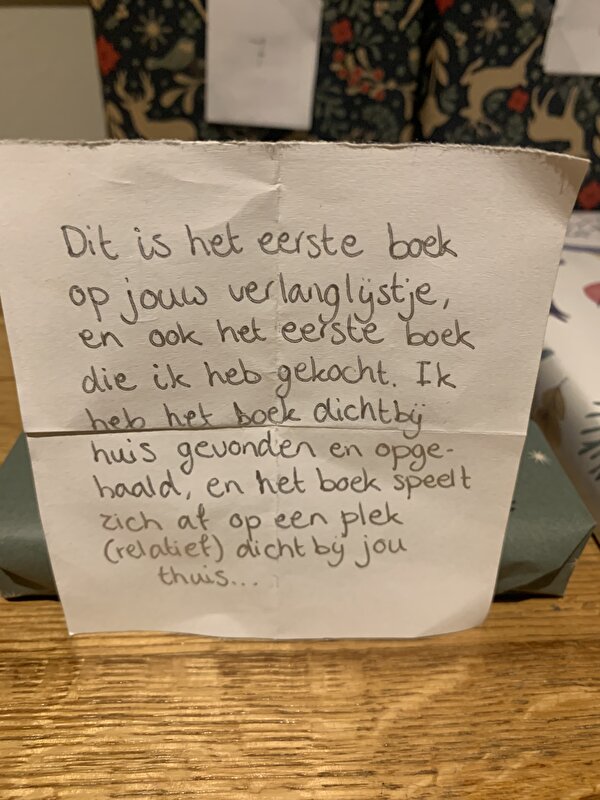 Dit is het eerste boek
op jouw verlanglijstje,
en ook het eerste boek
die ik heb gekocht. Ik
heb het boek dichtbij
huis gevonden en opge-
haald, en het boek speelt
zich af op een plek
(relatief) dicht bij jou
thuis...